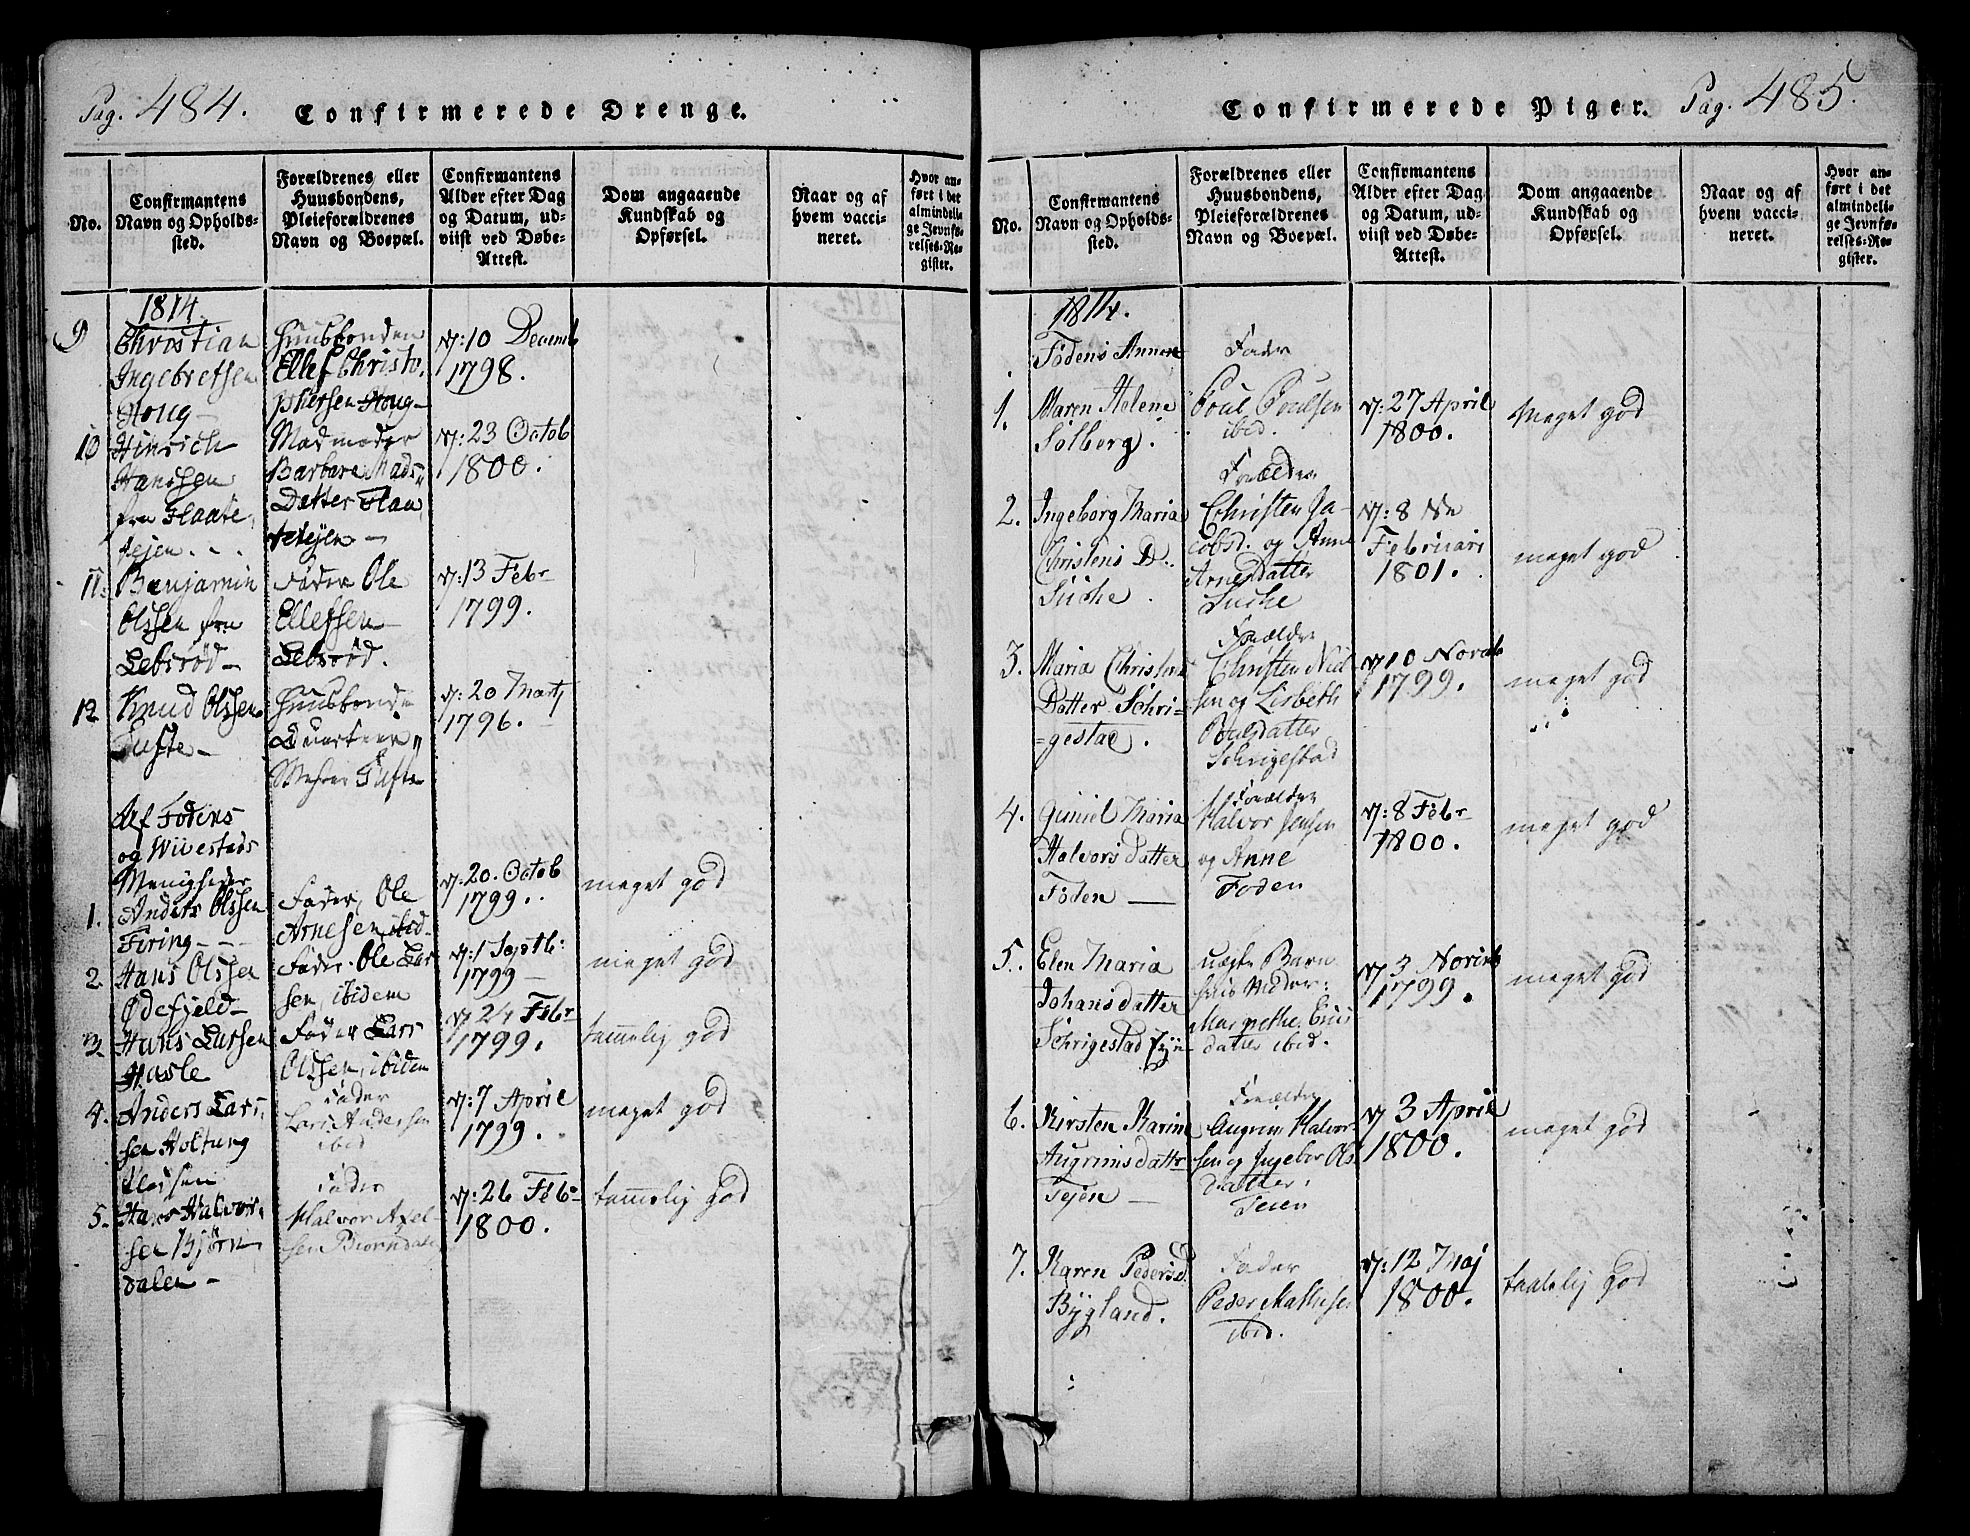 Pag. 484.
Confirmerede Drenge.
No.
Confirmantens Navn og Opholdssted.
Forældrenes eller Huusbondens, Pleieforældrenes Navn og Boepæl.
Confirmantens Alder efter Dag og Datum, udviist ved Døbe-Attest.
Dom angaaende Kundskab og Opførsel.
Naar og af hvem vaccineret.
Hvor anført i det almindelige Jevnførelses-Register.
1814.
9
Christian
Ingebretsen
Houg
Huusbonden
Ellef Christo.
phersen Houg
10 Decemb
1798.
10
Hinrich
Hanssen
fra Flaate,
tejen
Madmoder
Barbara Mads
Datter Flaa
tetejen
23 Octob
1800.
11.
Benjamin
Olssen fra
Lebsröd
Fader Ole
Ellefsen
Lebsröd.
13 Febr
1799.
12
Knud Olssen
Tufte
Huusbonde
Tufte
20 Martj
1796.
Af Fødens
og Wivestads
Menigheder
1.
Anders Olssen
Firing
Fader, Ole
Arnesen ibid
20. Octob
1799.
meget god
2.
Hans Olssen
Ødefjeld
Fader. Ole Lar
sen ibidem
1 Septb:
1799
meget god
3.
Hans Larsen
Hasle
Fader Lars
Olssen, ibidem
24 Febr
1799.
tammelig god
4.
Anders Lars
sen Holtung
Pladsen
Fader
Lars Andersen
ibid
7 April
1799.
meget god
5.
Hans Halvor
sen Bjørn
dalen
Fader
Halvor Axel
sen Biørndalen
26 Febr
1800.
tammelig god
Confirmerede Piger.
Pag. 485.
No.
Confirmantens Navn og Opholdssted.
Forældrenes eller Huusbondens, Pleieforældrenes Navn og Boepæl.
Confirmantens Alder efter Dag og Datum, udviist ved Døbe-Attest.
Dom angaaende Kundskab og Opførsel.
Naar og af hvem vaccineret.
Hvor anført i det almindelige Jevnførelses-Register.
1814.
Fødens Annex
1.
Maren Helene
Solberg.
Fader
Poul Poulsen
ibid.
27 April
1800.
Meget god
2.
Ingeborg Maria
Christens D.
Suche
Forælder
Christen Ja-
cobs. og Anne
Arnesdatter
Suche
8
Februari
1801.
meget god
3.
Maria Christens
Datter Schri-
gestad.
Forælder
Christen Niel
sen og Lisbeth
Poulsdatter
Schrigestad
10 Novb
1799.
meget god
4.
Guniel Maria
Halvorsdatter
Føden
Forælder
Halvor Jensen
og Anne
Føden
8 Febr
1800.
meget god
5.
Elen Maria
Johansdatter
Schrigestad
uægte Barn
Moder:
Margrethe
datter ibid.
3
1799.
meget god
6.
Kirsten Karine
Augrimsdatter
Tejen
Forælder
Augrim Halvor
sen og Ingebor Ols
Datter,
Teien
3 April
1800.
meget god
7.
Karen Pedersd.
Bygland.
Fader
Peder Mathisen
ibid.
12 Maj
1800.
taalelig god